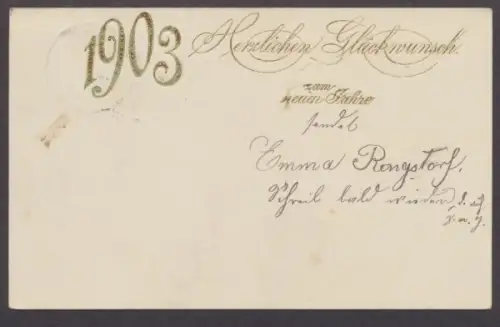 1903
Herzlichen Glückwunsch
zum
neuen Jahre
sendet
Emma Rengstorf.
Schreib bald wieder